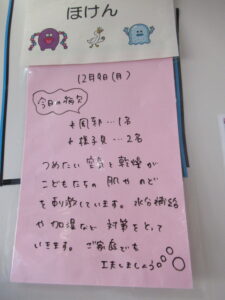 ほけん
12月9日(月)
今日の病欠
＊風邪…1名
＊様子見…2名
つめたい空気と乾燥が
こどもたちの肌やのど
を刺激しています。水分補給
や加湿など対策をとって
いきます。ご家庭でも
工夫しましょう。